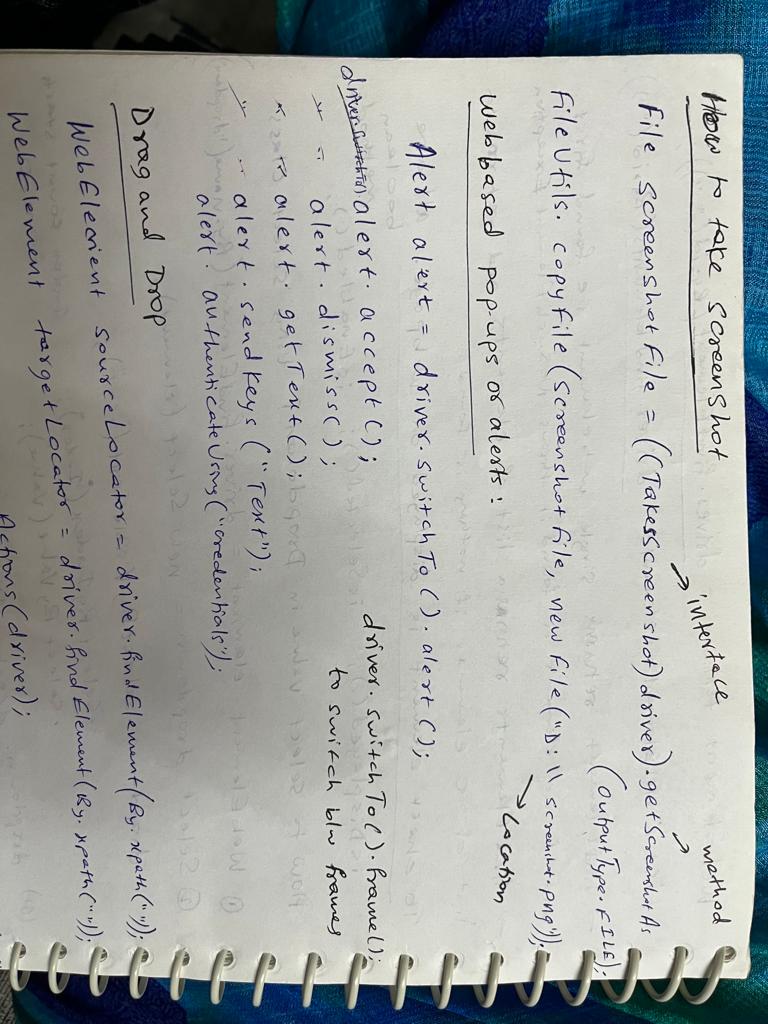 How to take screenshot
interface
method
File screenshotFile = ((TakesScreenshot)driver).getScreenshotAs
(OutputType.FILE);
FileUtils.copyFile(screenshotfile, new file("D:\\screenshot.png"));
Location
Web based pop-ups or alerts:
Alert alert = driver.switchTo().alert();
alert.accept();
driver.switchTo().frame();
alert.dismiss();
to switch b/w frames
alert.getText();
alert.sendkeys("Text");
alert.authenticateUsing("credentials");
Drag and Drop
WebElement sourceLocator = driver.findElement(By.xpath(""));
WebElement targetLocator = driver.findElement(By.xpath(""));
Actions(driver);